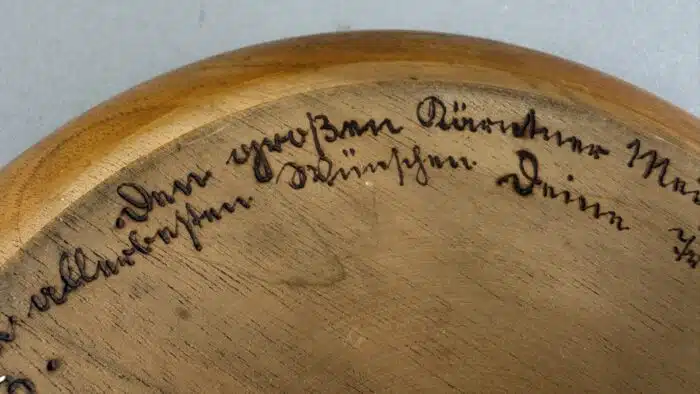 Den großen Kärntner
allerbesten Wünschen Deine